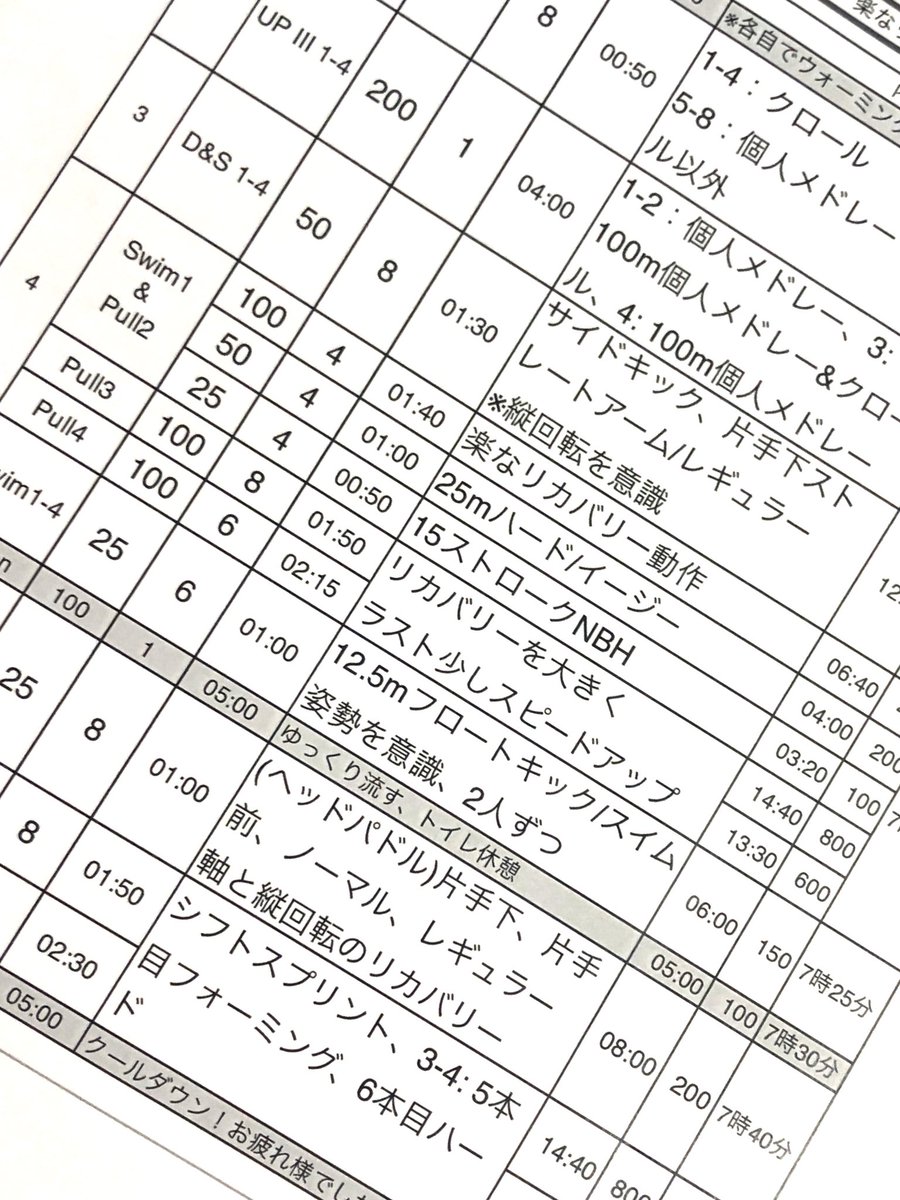 楽な
※各自でウォーミング
8 00:50 1-4：クロール
5-8：個人メドレー
ル以外
UP III 1-4 200 1 04:00 1-2：個人メドレー、3:
100m個人メドレー&クロー
ル、4: 100m個人メドレー
3 D&S 1-4 50 8 01:30 サイドキック、片手下スト
レートアーム/レギュラー
※縦回転を意識 12
4 Swim1
&
Pull2
100 4 01:40 楽なリカバリー動作 06:40
50 4 01:00 25mハード/イージー 04:00 200
25 4 00:50 15ストロークNBH 03:20 100
Pull3 100 8 01:50 リカバリーを大きく 14:40 800
Pull4 100 6 02:15 ラスト少しスピードアップ 13:30 600
wim1-4 25 6 01:00 12.5mフロートキック/スイム
姿勢を意識、2人ずつ 06:00 150 7時25分
n 100 1 05:00 ゆっくり流す、トイレ休憩 05:00 100 7時30分
25 8 01:00 (ヘッドパドル)片手下、片手
前、ノーマル、レギュラー
軸と縦回転のリカバリー 08:00 200 7時40分
8 01:50 シフトスプリント、3-4: 5本
目フォーミング、6本目ハー
ド 14:40 800
02:30
05:00 クールダウン！お疲れ様でした